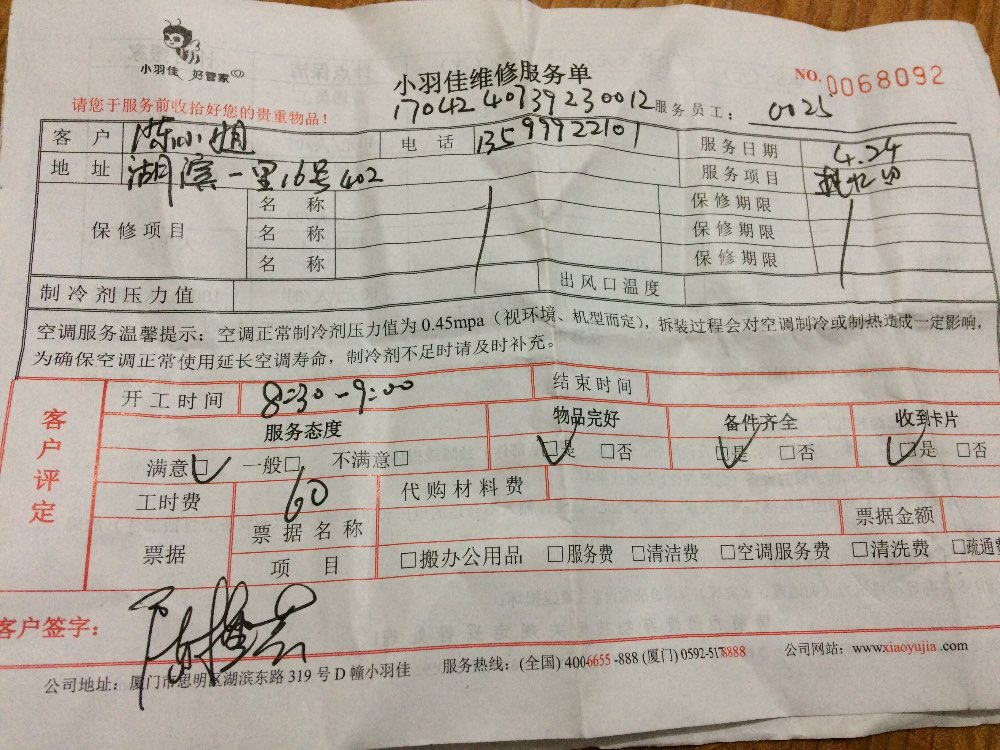 小羽佳 好管家
小羽佳维修服务单
NO.0068092
请您于服务前收拾好您的贵重物品!
1704240739230012
服务员工: 0025
客户 陈小姐 电话 13599922101 服务日期 4.24
地址 湖滨一里16号402 服务项目
保修项目 名称 保修期限
名称 保修期限
名称 保修期限
制冷剂压力值 出风口温度
空调服务温馨提示:空调正常制冷剂压力值为0.45mpa(视环境、机型而定),拆装过程会对空调制冷或制热造成一定影响,
为确保空调正常使用延长空调寿命,制冷剂不足时请及时补充。
客户评定
开工时间 8:30-9:00 结束时间
服务态度 物品完好 备件齐全 收到卡片
满意□ 一般□ 不满意□ □是 □否 □是 □否 □是 □否
工时费 60 代购材料费
票据 票据名称 票据金额
项目 □搬办公用品 □服务费 □清洁费 □空调服务费 □清洗费 □疏通费
客户签字:
公司地址:厦门市思明区湖滨东路319号D幢小羽佳 服务热线:(全国)4006655-888(厦门)0592-5178888 公司网站:www.xiaoyujia.com